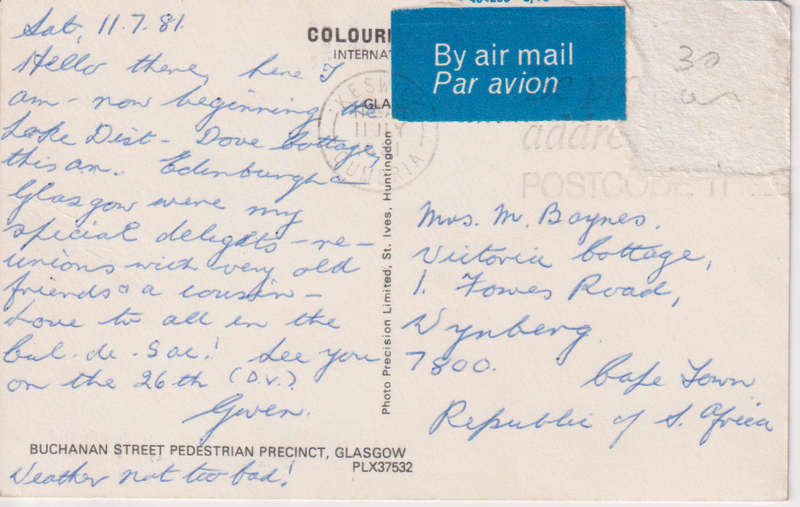 Sat, 11.7.81.
Hello there, here I
am - now beginning the
Lake Dist - Dove Cottage,
this am. Edinburgh &
Glasgow were my
special delights - re-
unions with very old
friends & a cousin -
Love to all in the
Cul-de-Sac! See you
on the 26th (D.V.)
Gwen.
BUCHANAN STREET PEDESTRIAN PRECINCT, GLASGOW
PLX37532
Weather not too bad!
COLOUR
INTERNAT
GLA
Photo Precision Limited, St. Ives, Huntingdon
By air mail
Par avion
30
KESWICK
11 JLY
CUMBRIA
addre
POSTCODE IT
Mrs. M. Baynes.
Victoria Cottage,
1. Fowes Road,
Wynberg.
7800. Cape Town
Republic of S. Africa